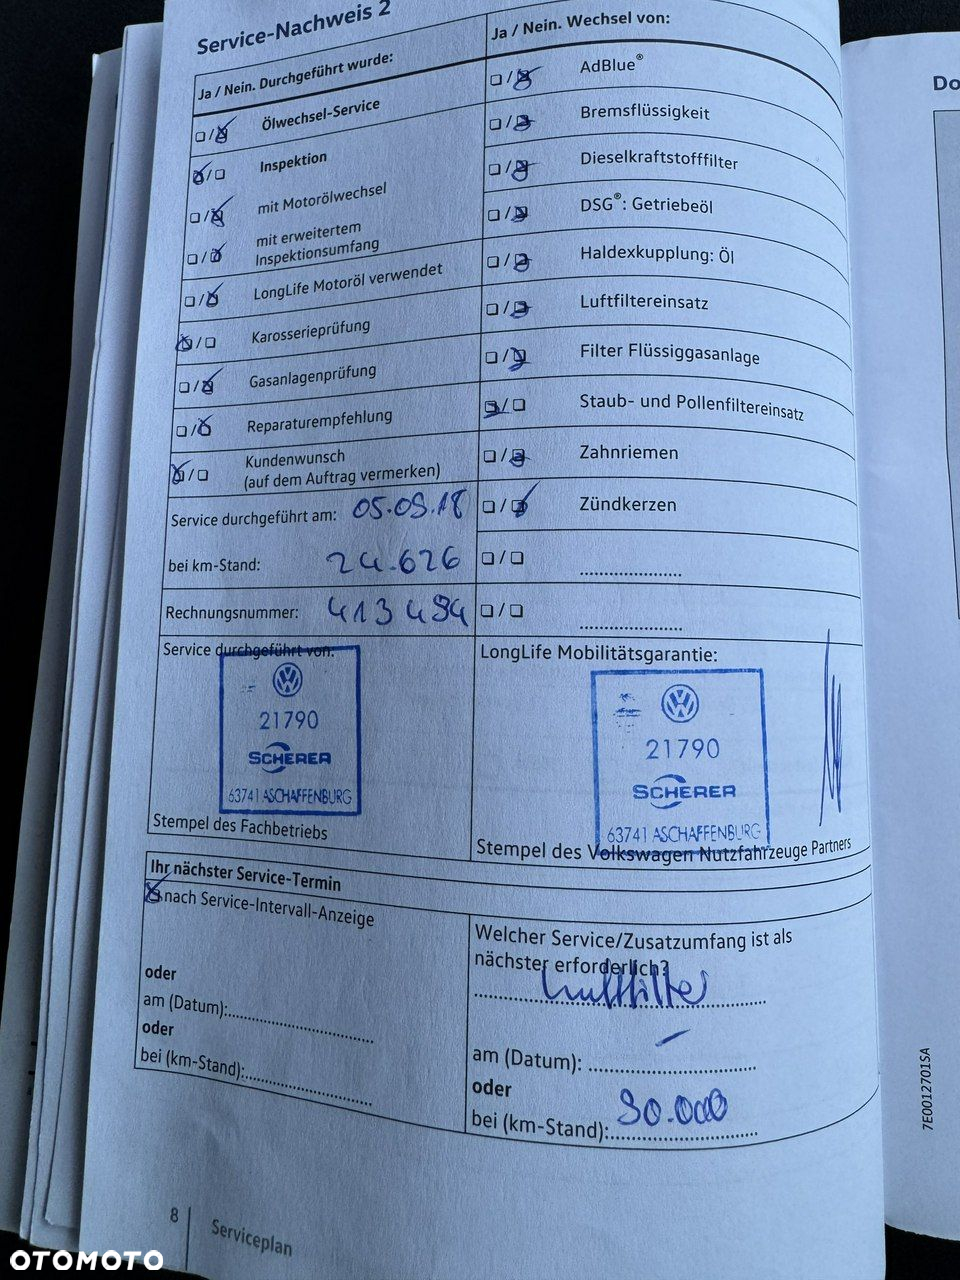 Service-Nachweis 2
Ja / Nein. Durchgeführt wurde:
Ölwechsel-Service
Inspektion
mit Motorölwechsel
mit erweitertem
Inspektionsumfang
LongLife Motoröl verwendet
Karosserieprüfung
Gasanlagenprüfung
Reparaturempfehlung
Kundenwunsch
(auf dem Auftrag vermerken)
Service durchgeführt am: 05.09.18
bei km-Stand: 24.626
Rechnungsnummer: 413 494
Service durchgeführt von:
21790
SCHERER
63741 ASCHAFFENBURG
Stempel des Fachbetriebs
Ja / Nein. Wechsel von:
AdBlue®
Bremsflüssigkeit
Dieselkraftstofffilter
DSG®: Getriebeöl
Haldexkupplung: Öl
Luftfiltereinsatz
Filter Flüssiggasanlage
Staub- und Pollenfiltereinsatz
Zahnriemen
Zündkerzen
LongLife Mobilitätsgarantie:
21790
SCHERER
63741 ASCHAFFENBURG
Stempel des Volkswagen Nutzfahrzeuge Partners
Ihr nächster Service-Termin
nach Service-Intervall-Anzeige
oder
am (Datum):
oder
bei (km-Stand):
Welcher Service/Zusatzumfang ist als
nächster erforderlich?
Luftfilter
am (Datum): -
oder
bei (km-Stand): 90.000
8
Serviceplan
Do
7E0012701SA
OTOMOTO